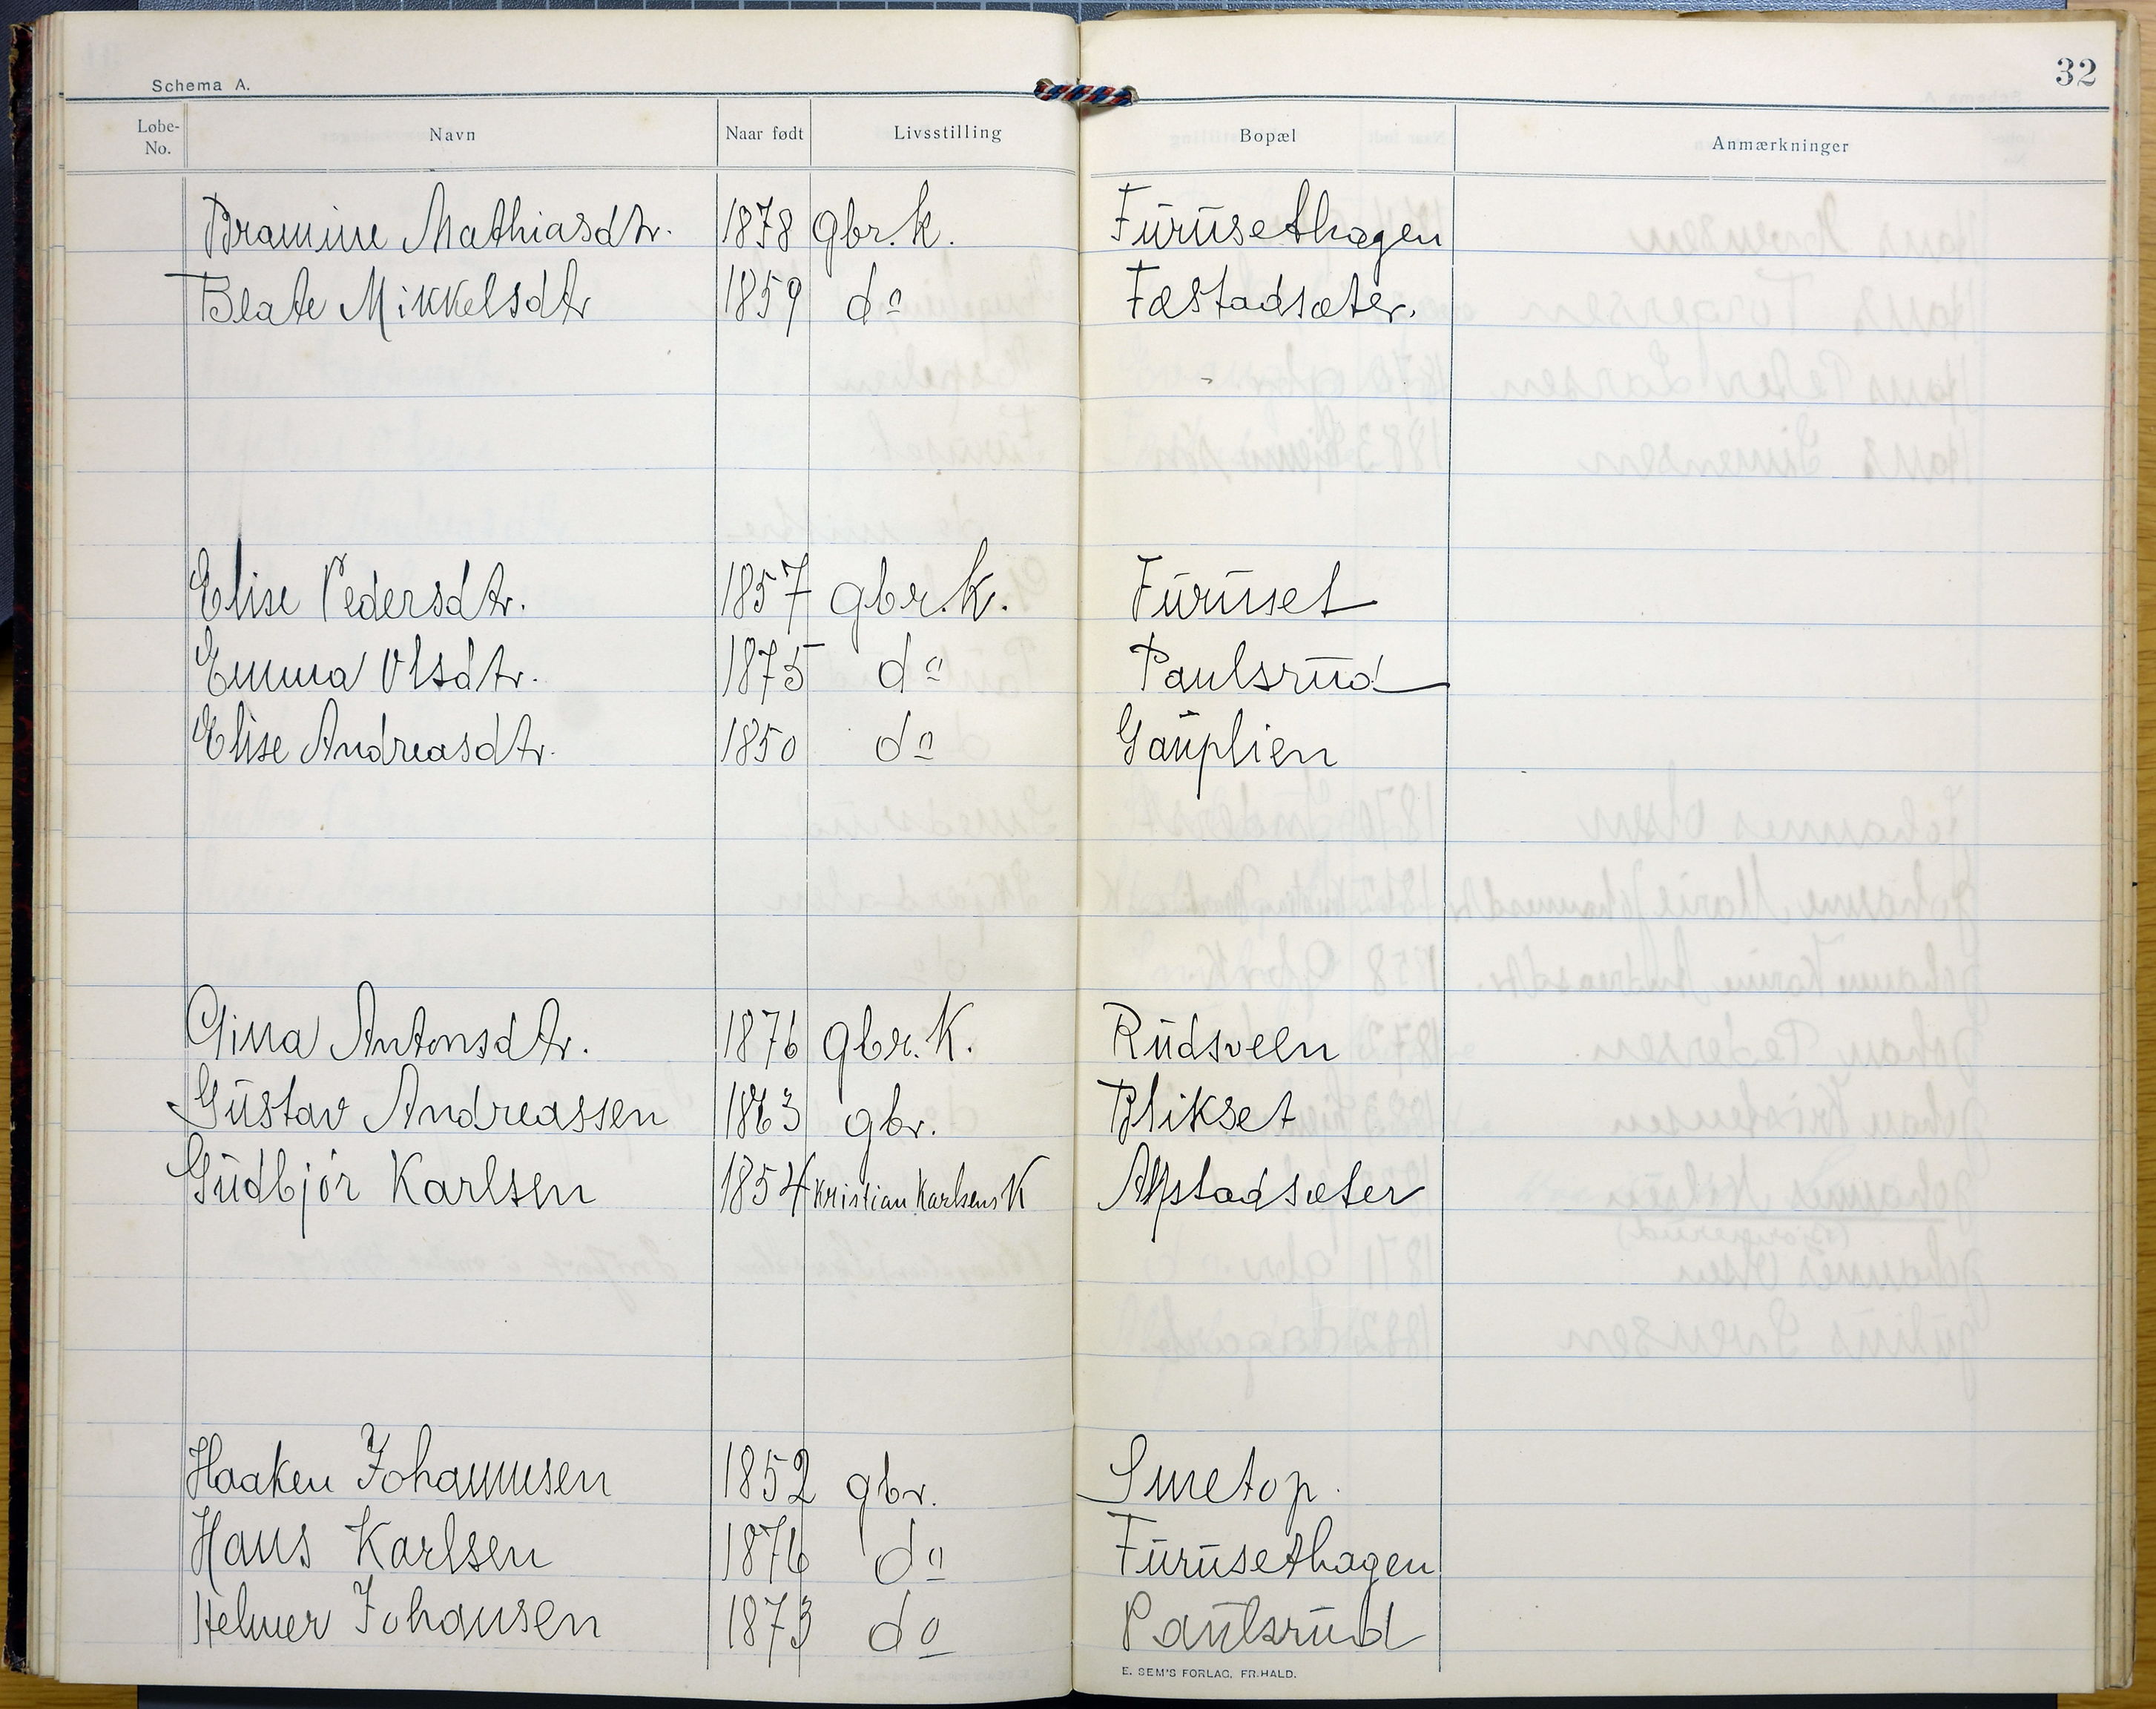 32
Schema A.
Løbe-No. Navn Naar født Livsstilling Bopæl Anmærkninger
Bramine Mathiasdtr. 1878 gbr.k. Furusethagen
Beate Mikkelsdtr 1859 do Fæstadsæter.
Elise Pedersdtr. 1857 gbr.k. Furuset
Emma Olsdtr. 1875 do Paulsrud
Elise Andreasdtr. 1850 do Gauplien
Gina Antonsdtr. 1876 gbr.K. Rudsveen
Gustav Andreassen 1863 gbr. Blikset
Gudbjør Karlsen 1854 Kristian Karlsens K Alpstadsæter
Haaken Johannesen 1852 gbr. Smetop.
Hans Karlsen 1876 do Furusethagen
Helmer Johansen 1873 do Paulsrud
E. SEM'S FORLAG, FR.HALD.